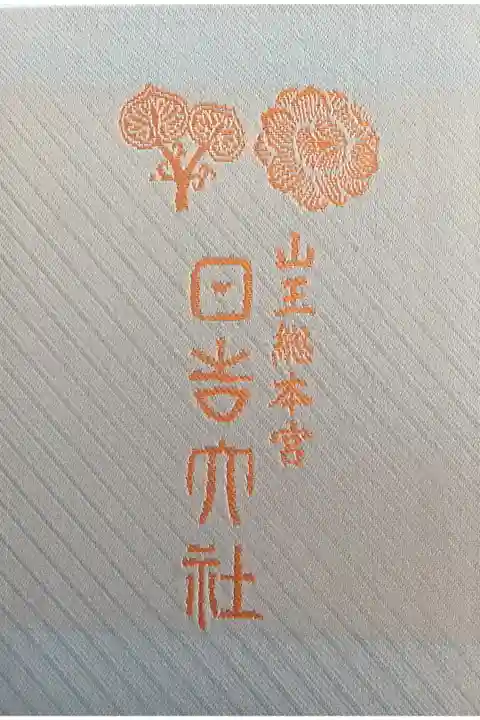 山王総本宮
日吉大社